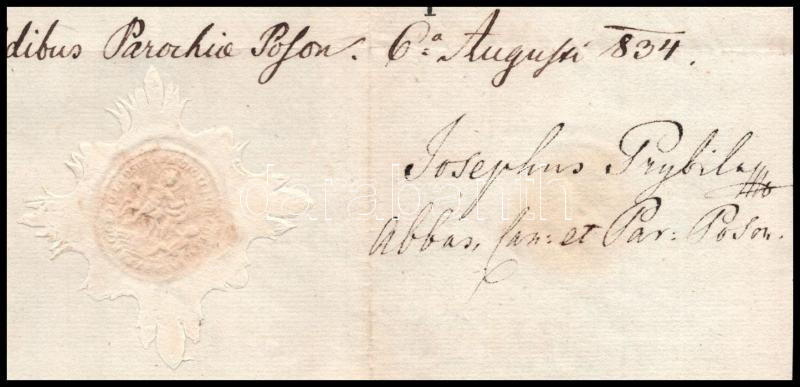 dibus Parochiæ Poson. 6.ª Augusti 834.
Josephus Prybila
Abbas, Can: et Par: Poson.
darabanth